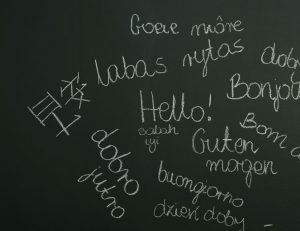 Goeie môre
labas rytas
dobr
Bonjou
早安
Hello!
sabah
iyi
Guten
morgen
Bom d
dobro
jutro
buongiorno
dzień doby